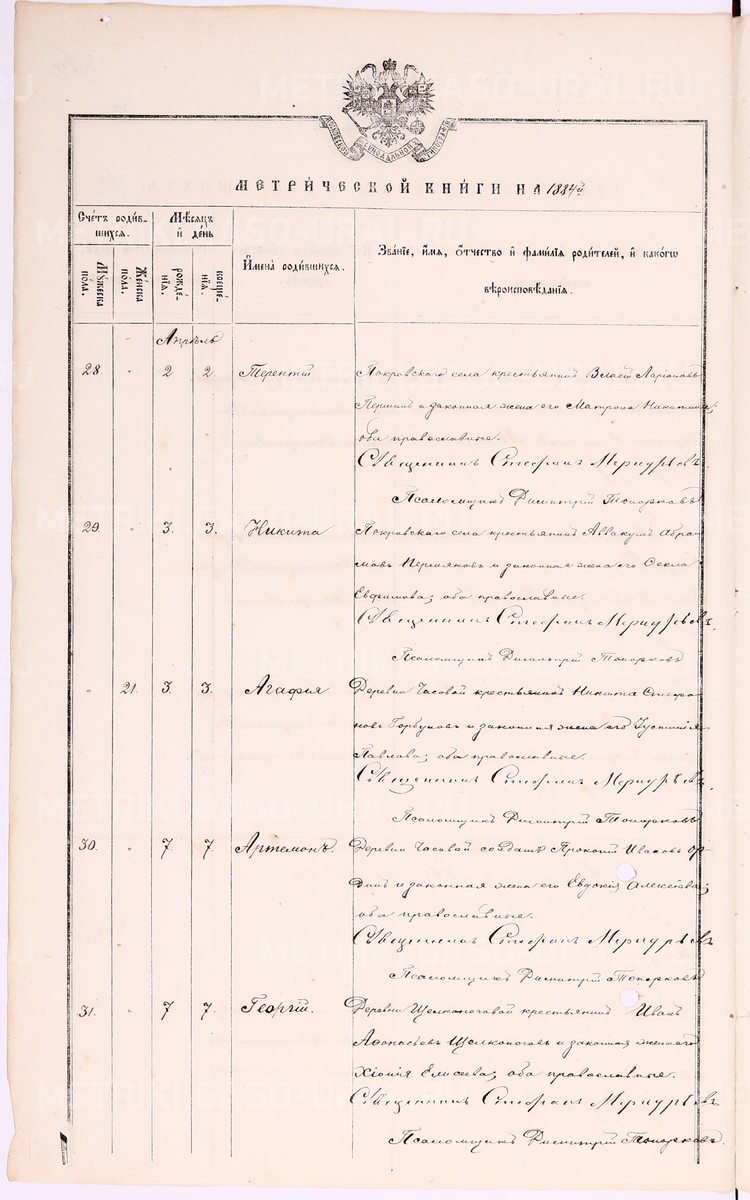 МОСКОВСКОЙ СѴНОДАЛЬНОЙ ТИПОГРАФІИ
МЕТРИ́ЧЕСКОЙ КНИ́ГИ НА 1884й
Сче́тъ роди́в-
шихся.
Мѣсяцъ
и де́нь
Имена̀ родившихся.
Зва́нїе, и́мя, ѻ́тчество и фами́лїя роди́телей, и како́гѡ
вѣроисповѣ́данїя.
Мꙋ́жеска
пола.
Же́нска
пола.
рожде́-
нїя.
креще́-
нїя.
Апрѣль
28. „ 2 2. Терентій Покровскаго села крестьянинъ Власій Ларіоновъ
Першинъ и законная жена его Матрона Никитина;
оба православные.
Священникъ Стефанъ Меркурьевъ.
Псаломщикъ Димитрій Топорковъ
29. „ 3. 3. Никита Покровскаго села крестьянинъ Аввакумъ Абра-
мовъ Пермяковъ и законная жена его Fекла
Евфимова; оба православные.
Священникъ Стефанъ Меркурьевъ.
Псаломщикъ Димитрій Топорковъ
„ 21. 3. 3. Агафія Деревни Часовой крестьянинъ Никита Стефа-
новъ Горбуновъ и законная жена его Іустинія
Павлова; оба православные.
Священникъ Стефанъ Меркурьевъ.
Псаломщикъ Димитрій Топорковъ
30. „ 7 7. Артемонъ. Деревни Часовой солдатъ Прокопій Ивановъ
и законная жена его Евдокія Алексіева;
оба православные.
Священникъ Стефанъ Меркурьевъ
Псаломщикъ Димитрій Топорковъ
31. „ 7 7. Георгій. Деревни Щелконоговой крестьянинъ Иванъ
Афонасьевъ Щелконоговъ и законная жена его
Хіонія Елисеева; оба православные.
Священникъ Стефанъ Меркурьевъ
Псаломщикъ Димитрій Топорковъ.